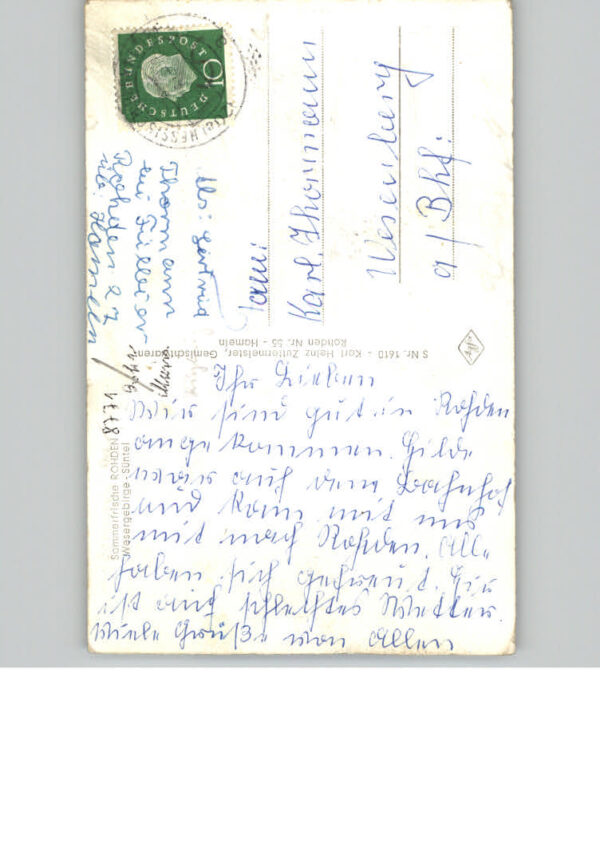 Ihr Lieben
Wir sind gut in Rohden
angekommen. Hilde
war auf dem Bahnhof
und kam mit uns
mit nach Rohden. Alle
haben sich gefreut. Hier
ist auch schlechtes Wetter.
Viele Grüße von Allen
Sommerfrische ROHDEN
Wesergebirge-Süntel
S Nr. 1610 - Karl Heinz Zuttermeister, Gemischtwaren
Rohden Nr. 55 - Hameln
DEUTSCHE BUNDESPOST
10
HESSISCH
Abs: Gertrud
Thormann
Rohden 27
üb. Hameln
Fam:
Karl. Thormann
Wesenberg
a/Bhf.